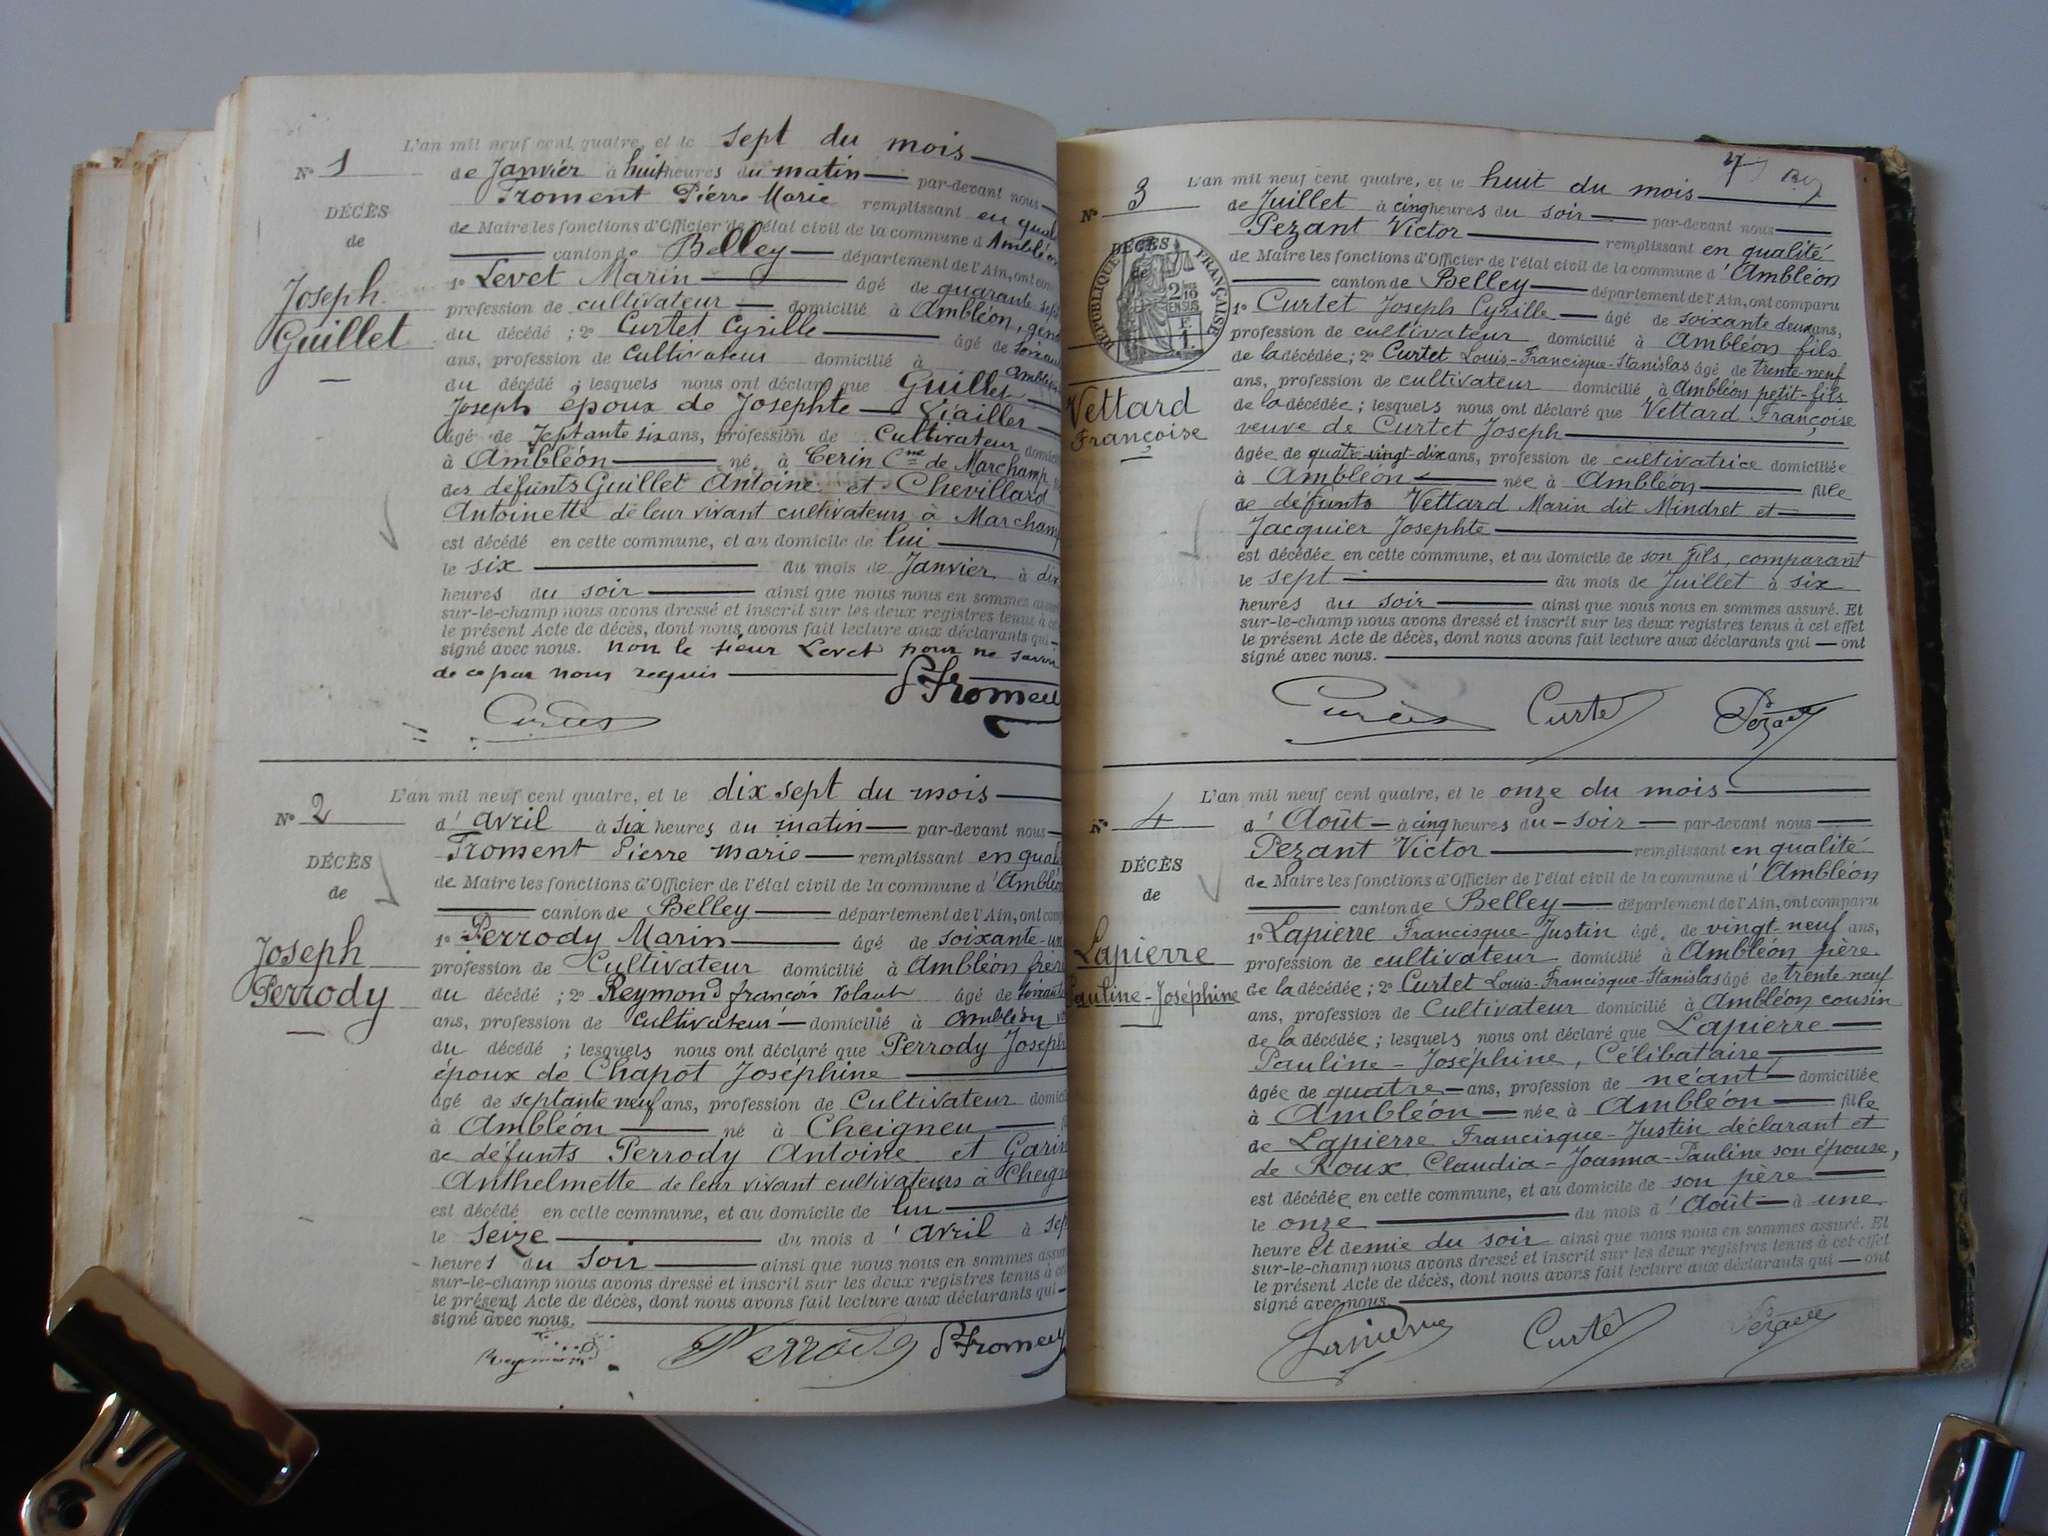 L'an mil neuf cent quatre, et le sept du mois
N° 1
de Janvier à huit heures du matin par-devant nous
Froment Pierre Marie remplissant en
DÉCÈS
de
Joseph
Guillet
de Maire les fonctions d'Officier de l'état civil de la commune d'Ambléon
canton de Belley département de l'Ain, ont
1° Levet Marin âgé de quarante sept
profession de cultivateur domicilié à Ambléon,
du décédé ; 2° Curtet Cyrille âgé de
ans, profession de cultivateur domicilié à Ambléon
du décédé lesquels nous ont déclaré que Guillet
Joseph époux de Josephte Viailler
âgé de septante six ans, profession de cultivateur
à Ambléon né à Cerin Cne de Marchamp
des défunts Guillet Antoine et Chevillard
Antoinette de leur vivant cultivateurs à Marchamp
est décédé en cette commune, et au domicile de lui
le six du mois de Janvier à dix
heures du soir ainsi que nous nous en sommes assuré
sur-le-champ nous avons dressé et inscrit sur les deux registres tenus à
le présent Acte de décès, dont nous avons fait lecture aux déclarants qui
signé avec nous. non le sieur Levet pour ne savoir
de ce par nous requis
P Froment
N° 2
L'an mil neuf cent quatre, et le dix sept du mois
d'avril à six heures du matin par-devant nous
Froment Pierre Marie remplissant en
DÉCÈS
de
Joseph
Perrody
de Maire les fonctions d'Officier de l'état civil de la commune d'Ambléon
canton de Belley département de l'Ain, ont
1° Perrody Marin âgé de soixante-un
profession de Cultivateur domicilié à Ambléon frère
du décédé ; 2° Reymond françois âgé de
ans, profession de cultivateur domicilié à Ambléon
du décédé ; lesquels nous ont déclaré que Perrody Joseph
époux de Chapot Joséphine
âgé de septante neuf ans, profession de Cultivateur
à Ambléon né à Cheigneu
de défunts Perrody Antoine et Garin
Anthelmette de leur vivant cultivateurs à
est décédé en cette commune, et au domicile de lui
le seize du mois d'avril à sept
heures du soir ainsi que nous nous en sommes assuré
sur-le-champ nous avons dressé et inscrit sur les deux registres tenus à
le présent Acte de décès, dont nous avons fait lecture aux déclarants qui
signé avec nous.
Reymond Perrody P Froment
4
N° 3
L'an mil neuf cent quatre, et le huit du mois
de Juillet à cinq heures du soir par-devant nous
Pezant Victor remplissant en qualité
DÉCÈS
de
RÉPUBLIQUE FRANÇAISE
Vettard
Françoise
de Maire les fonctions d'Officier de l'état civil de la commune d'Ambléon
canton de Belley département de l'Ain, ont comparu
1° Curtet Joseph Cyrille âgé de soixante deux ans,
profession de cultivateur domicilié à Ambléon fils
de la décédée ; 2° Curtet Louis-Francisque-Stanislas âgé de trente-neuf
ans, profession de cultivateur domicilié à Ambléon petit-fils
de la décédée ; lesquels nous ont déclaré que Vettard Françoise
veuve de Curtet Joseph
âgée de quatre-vingt-dix ans, profession de cultivatrice domiciliée
à Ambléon née à Ambléon fille
de défunts Vettard Marin dit Mindret et
Jacquier Josephte
est décédée en cette commune, et au domicile de son fils, comparant
le sept du mois de Juillet à six
heures du soir ainsi que nous nous en sommes assuré. Et
sur-le-champ nous avons dressé et inscrit sur les deux registres tenus à cet effet
le présent Acte de décès, dont nous avons fait lecture aux déclarants qui ont
signé avec nous.
Curtet Pezant
N° 4
L'an mil neuf cent quatre, et le onze du mois
d'Août à cinq heures du soir par-devant nous
Pezant Victor remplissant en qualité
DÉCÈS
de
Lapierre
Pauline-Joséphine
de Maire les fonctions d'Officier de l'état civil de la commune d'Ambléon
canton de Belley département de l'Ain, ont comparu
1° Lapierre Francisque-Justin âgé de vingt-neuf ans,
profession de cultivateur domicilié à Ambléon père
de la décédée ; 2° Curtet Louis-Francisque-Stanislas âgé de trente-neuf
ans, profession de Cultivateur domicilié à Ambléon cousin
de la décédée ; lesquels nous ont déclaré que Lapierre
Pauline-Joséphine, Célibataire,
âgée de quatre ans, profession de néant domiciliée
à Ambléon née à Ambléon fille
de Lapierre Francisque-Justin déclarant et
de Roux Claudia-Joanna-Pauline son épouse,
est décédée en cette commune, et au domicile de son père
le onze du mois d'Août à une
heure et demie du soir ainsi que nous nous en sommes assuré. Et
sur-le-champ nous avons dressé et inscrit sur les deux registres tenus à cet effet
le présent Acte de décès, dont nous avons fait lecture aux déclarants qui ont
signé avec nous.
Lapierre Curtet Pezant